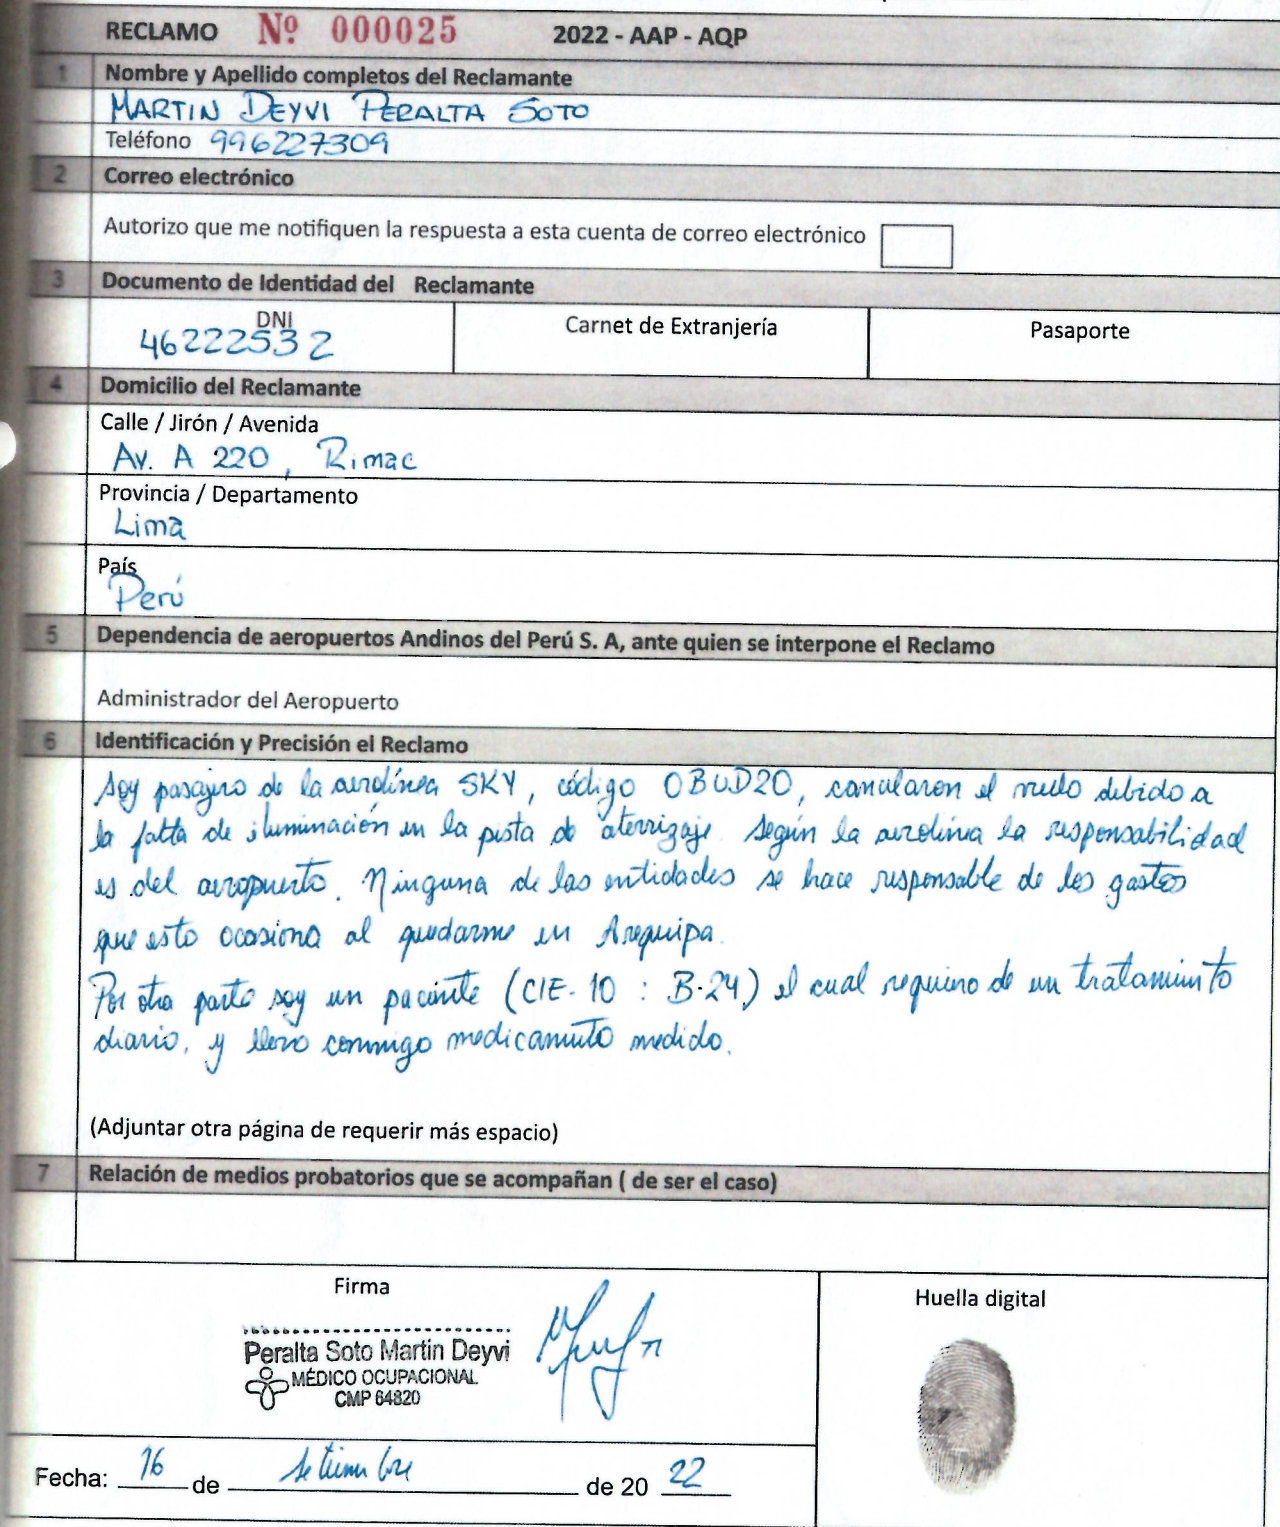 RECLAMO Nº 000025 2022 - AAP - AQP
1 Nombre y Apellido completos del Reclamante
MARTIN DEYVI PERALTA SOTO
Teléfono 996227309
2 Correo electrónico
Autorizo que me notifiquen la respuesta a esta cuenta de correo electrónico
3 Documento de Identidad del Reclamante
DNI Carnet de Extranjería Pasaporte
46222532
4 Domicilio del Reclamante
Calle / Jirón / Avenida
Av. A 220, Rimac
Provincia / Departamento
Lima
País
Perú
5 Dependencia de aeropuertos Andinos del Perú S. A, ante quien se interpone el Reclamo
Administrador del Aeropuerto
6 Identificación y Precisión el Reclamo
Soy pasajero de la aerolínea SKY, código OBUD20, cancelaron el vuelo debido a
la falta de iluminación en la pista de aterrizaje. Según la aerolínea la responsabilidad
es del aeropuerto. Ninguna de las entidades se hace responsable de los gastos
que esto ocasiona al quedarme en Arequipa.
Por otra parte soy un paciente (CIE-10 : B-24) el cual requiero de un tratamiento
diario, y llevo conmigo medicamento medido.
(Adjuntar otra página de requerir más espacio)
7 Relación de medios probatorios que se acompañan ( de ser el caso)
Firma
Huella digital
Peralta Soto Martin Deyvi
MÉDICO OCUPACIONAL
CMP 64820
Fecha: 16 de setiembre de 20 22